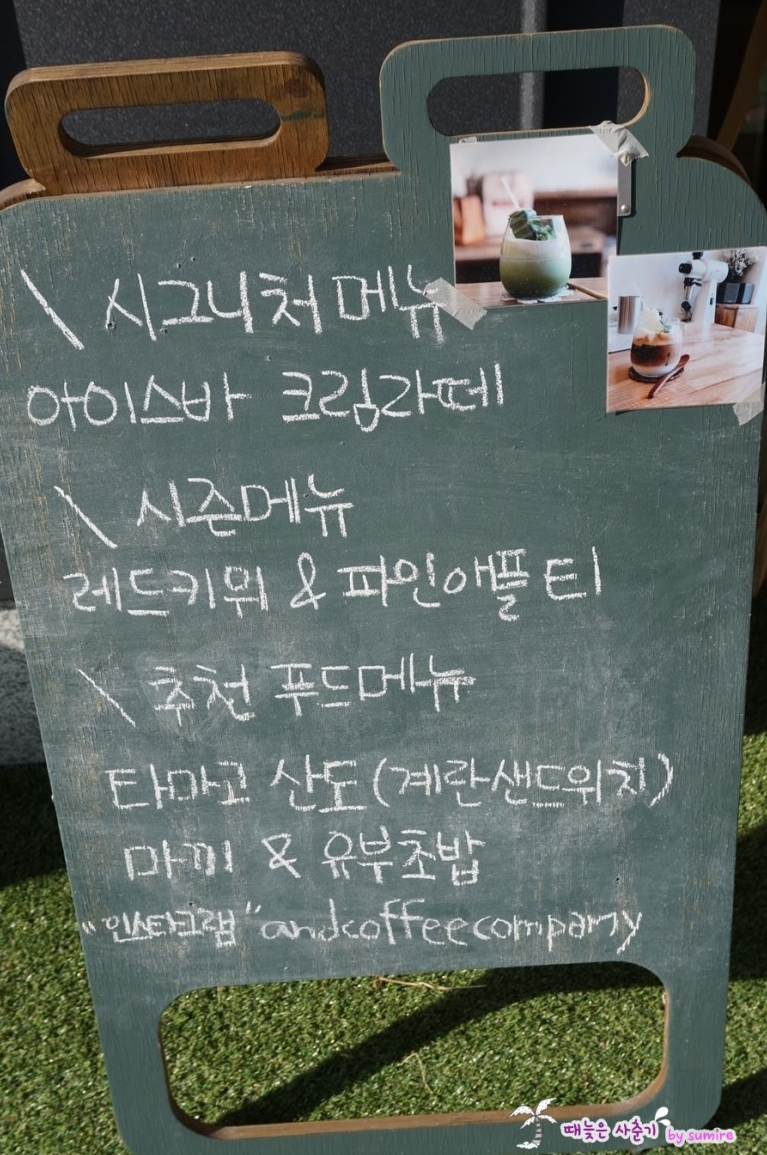 \ 시그니처 메뉴
아이스바 크림라떼
\ 시즌메뉴
레드키위 & 파인애플 티
\ 추천 푸드메뉴
타마고 산도 (계란샌드위치)
마끼 & 유부초밥
"인스타그램" andcoffeecompany
때늦은 사춘기 by sumire